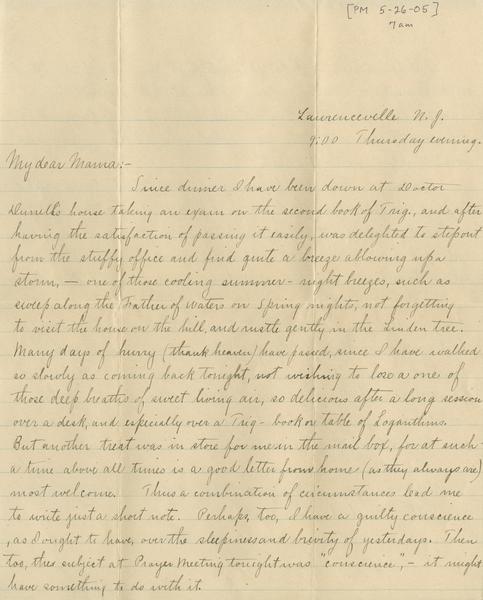 [PM 5-26-05]
7am
Lawrenceville N. J.
9:00 Thursday evening.
My dear Mama:-
Since dinner I have been down at Doctor
Durell's house taking an exam on the second book of Trig., and after
having the satisfaction of passing it easily, was delighted to step out
from the stuffy office and find quite a breeze ablowing up a
storm, — one of those cooling summer-night breezes, such as
sweep along the Father of Waters on Spring nights, not forgetting
to visit the house on the hill, and rustle gently in the Linden tree.
Many days of hurry (thank heaven) have passed, since I have walked
so slowly as coming back tonight, not wishing to lose a one of
those deep breaths of sweet living air, so delicious after a long session
over a desk, and especially over a Trig-book or table of Logarithms.
But another treat was in store for me in the mail box, for at such
a time above all times is a good letter from home (as they always are)
most welcome. Thus a combination of circumstances lead me
to write just a short note. Perhaps, too, I have a guilty conscience
, as I ought to have, over the sleepiness and brevity of yesterdays. Then
too, the subject at Prayer Meeting tonight was "conscience", – it might
have something to do with it.